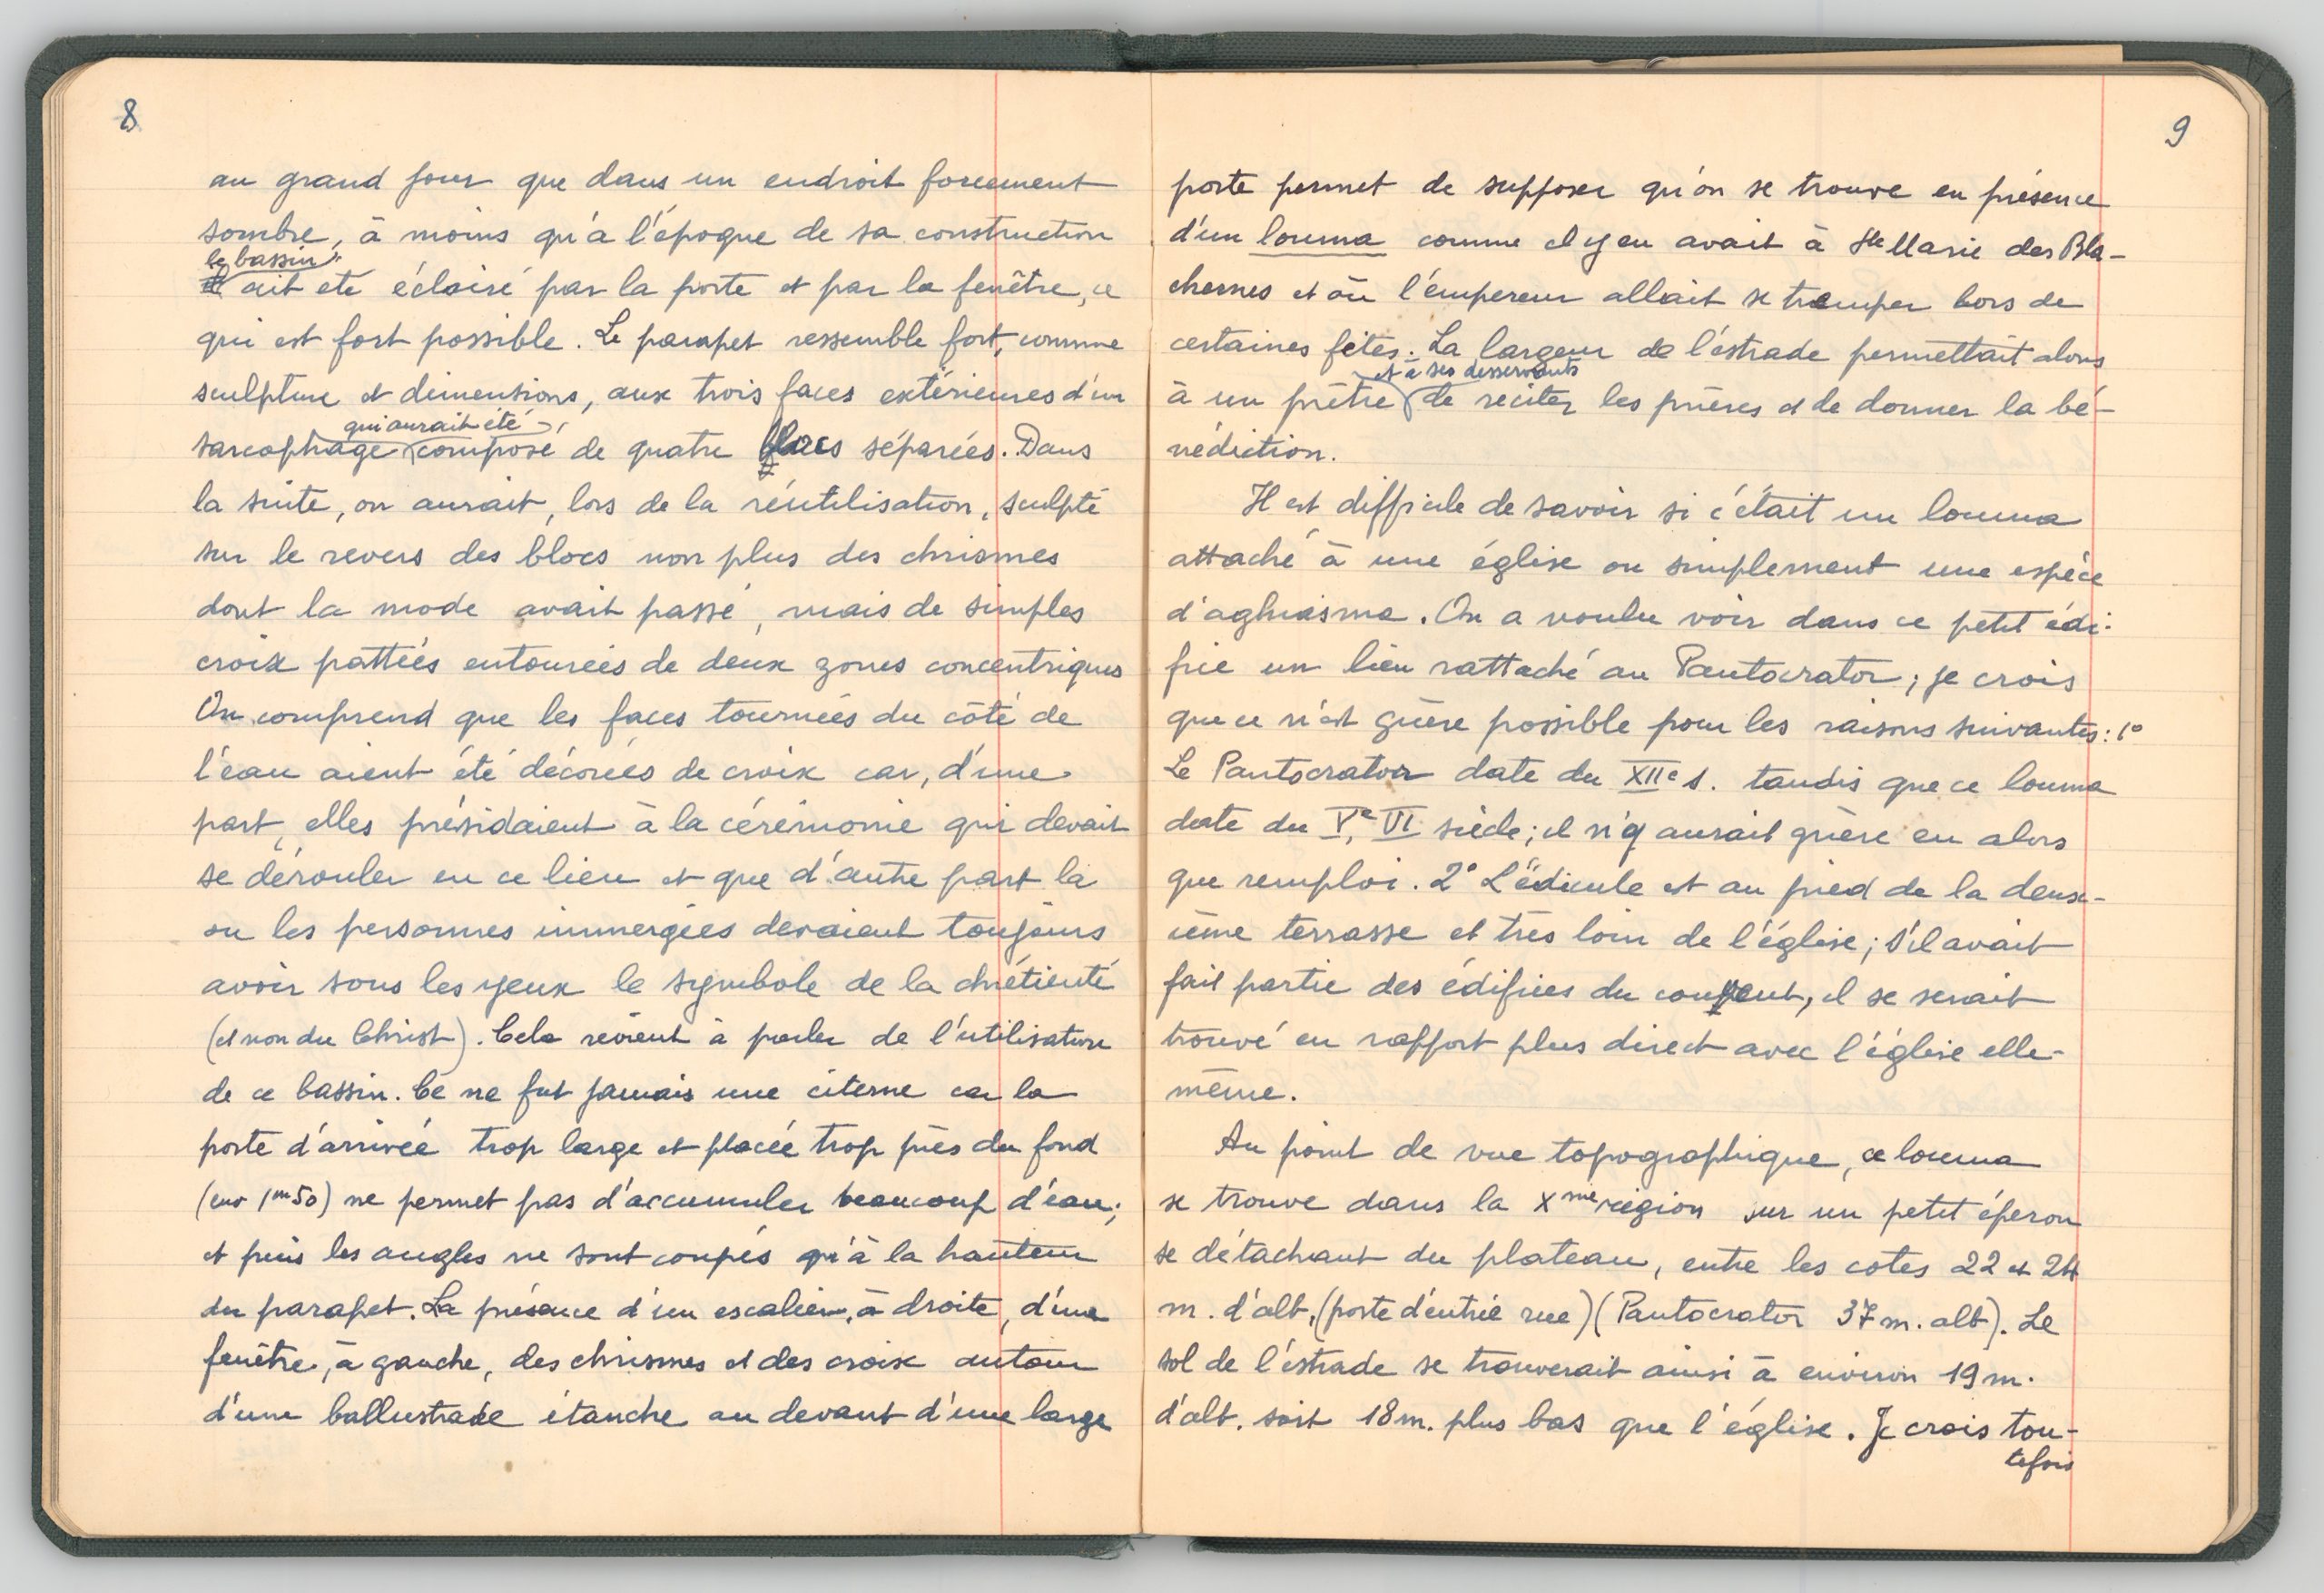 8
au grand jour que dans un endroit forcement
sombre, à moins qu'à l'époque de sa construction
le bassin
ait été éclairé par la porte et par la fenêtre, ce
qui est fort possible. Le parapet ressemble fort, comme
sculpture et dimensions, aux trois faces extérieures d'un
qui aurait été
sarcophage composé de quatre faces séparées. Dans
la suite, on aurait, lors de la réutilisation, sculpté
sur le revers des blocs non plus des chrismes
dont la mode avait passé, mais de simples
croix pattées entourées de deux zones concentriques
On comprend que les faces tournées du côté de
l'eau aient été décorées de croix car, d'une
part, elles présidaient à la cérémonie qui devait
se dérouler en ce lieu et que d'autre part la
ou les personnes immergées devaient toujours
avoir sous les yeux le symbole de la chrétienté
(et non du Christ). Cela revient à parler de l'utilisation
de ce bassin. Ce ne fut jamais une citerne car la
porte d'arrivée trop large et placée trop près du fond
(env 1m50) ne permet pas d'accumuler beaucoup d'eau;
et puis les angles ne sont coupés qu'à la hauteur
du parapet. La présence d'un escalier, à droite, d'une
fenêtre, à gauche, des chrismes et des croix autour
d'une ballustrade étanche au devant d'une large
9
porte permet de supposer qu'on se trouve en présence
d'un louma comme il y en avait à Ste Marie des Bla-
chernes et où l'empereur allait se tremper lors de
certaines fêtes. La largeur de l'estrade permettait alors
et à ses desservants
à un prêtre de réciter les prières et de donner la bé-
nédiction.
Il est difficile de savoir si c'était un louma
attaché à une église ou simplement une espèce
d'aghiasma. On a voulu voir dans ce petit édi-
fice un lieu rattaché au Pantocrator; je crois
que ce n'est guère possible pour les raisons suivantes: 1°
Le Pantocrator date du XIIe s. tandis que ce louma
date du Ve, VI siècle; il n'y aurait guère eu alors
que remploi. 2° L'édicule est au pied de la deux-
ième terrasse et très loin de l'église; s'il avait
fait partie des édifices du couvent, il se serait
trouvé en rapport plus direct avec l'église elle-
même.
Au point de vue topographique, ce louma
se trouve dans la Xme région sur un petit éperon
se détachant du plateau, entre les cotes 22 et 24
m. d'alt. (porte d'entrée rue) (Pantocrator 37 m. alt). Le
sol de l'estrade se trouverait ainsi à environ 19 m.
d'alt. soit 18 m. plus bas que l'église. Je crois tou-
tefois